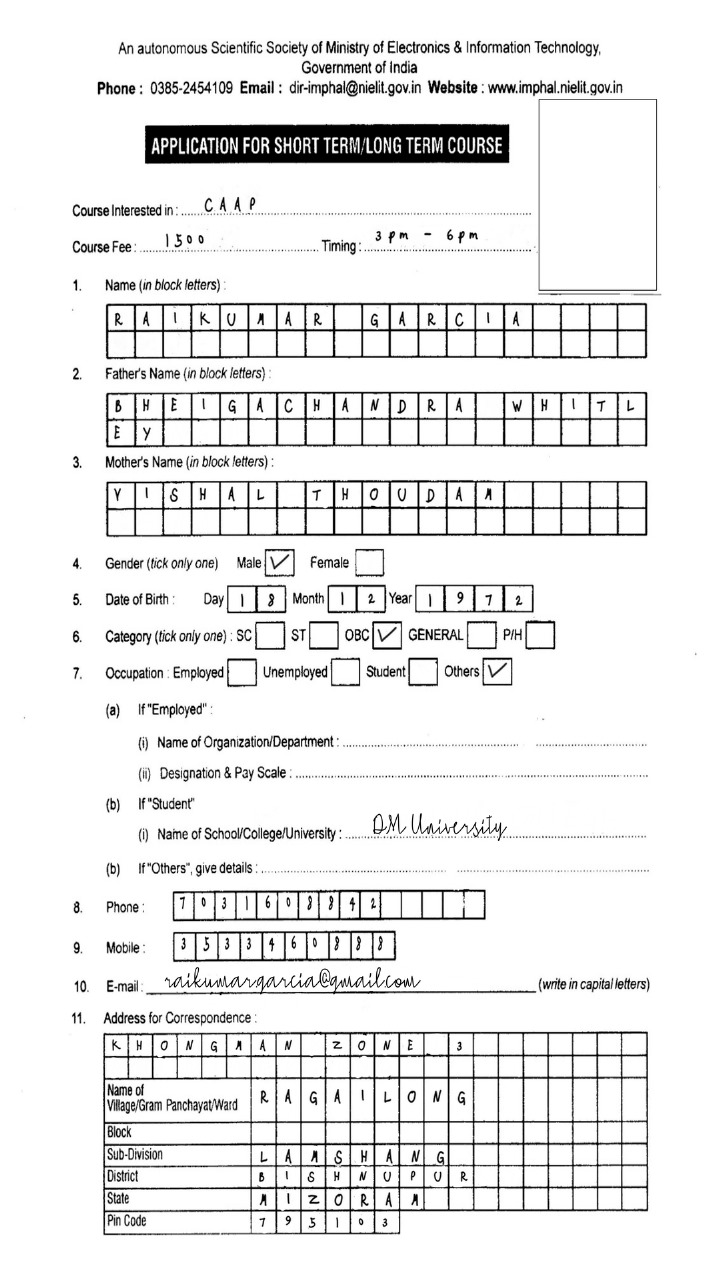 An autonomous Scientific Society of Ministry of Electronics & Information Technology,
Government of India
Phone : 0385-2454109 Email : dir-imphal@nielit.gov.in Website : www.imphal.nielit.gov.in
APPLICATION FOR SHORT TERM/LONG TERM COURSE
Course Interested in : CAAP
Course Fee : 1500 Timing : 3 pm - 6 pm
1. Name (in block letters) :
RAIKUMAR GARCIA
2. Father's Name (in block letters) :
BHEIGACHANDRA WHITL
EY
3. Mother's Name (in block letters) :
VISHAL THOUDAM
4. Gender (tick only one) Male ✓ Female
5. Date of Birth : Day 18 Month 12 Year 1972
6. Category (tick only one) : SC ST OBC ✓ GENERAL P/H
7. Occupation : Employed Unemployed Student Others ✓
(a) If "Employed" :
(i) Name of Organization/Department :
(ii) Designation & Pay Scale :
(b) If "Student"
(i) Name of School/College/University : DM University
(b) If "Others", give details :
8. Phone : 7031608842
9. Mobile : 3533460888
10. E-mail : raikumargarcia@gmail.com (write in capital letters)
11. Address for Correspondence :
KHONGMAN ZONE 3
Name of
Village/Gram Panchayat/Ward RAGAILONG
Block
Sub-Division LAMSHANG
District BISHNUPUR
State MIZORAM
Pin Code 795103